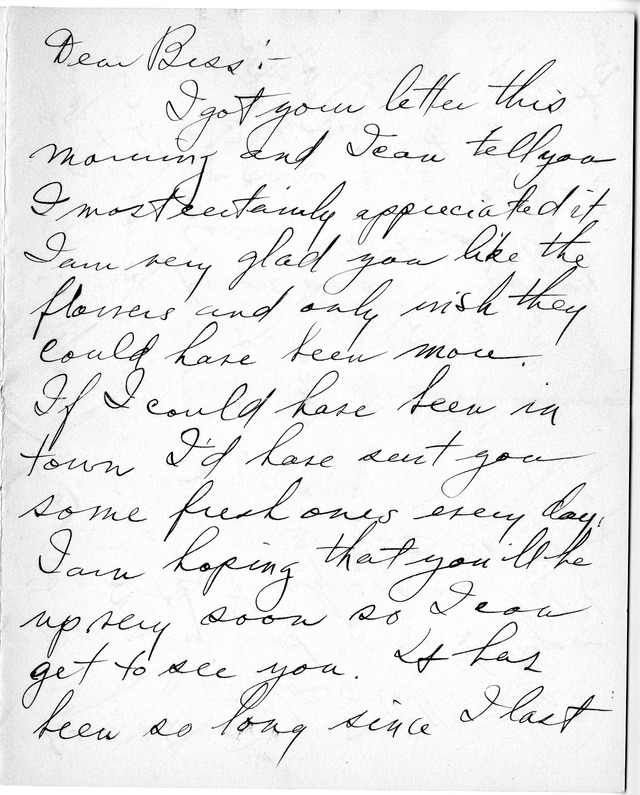 Dear Bess:-
I got your letter this
morning and I can tell you
I most certainly appreciated it
I am very glad you like the
flowers and only wish they
could have been more.
If I could have been in
town I'd have sent you
some fresh ones every day.
I am hoping that you'll be
up very soon so I can
get to see you. It has
been so long since I last